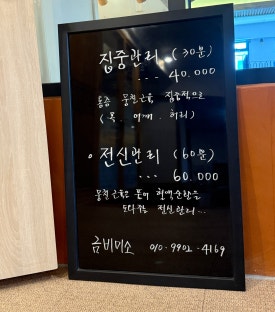 집중관리 (30분)
... 40.000
통증 뭉친근육 집중적으로
(목 . 어깨 . 허리)
전신관리 (60분)
... 60.000
뭉친 근육을 풀어 혈액순환을
도와주는 전신관리...
금비미소 010-9902-4169